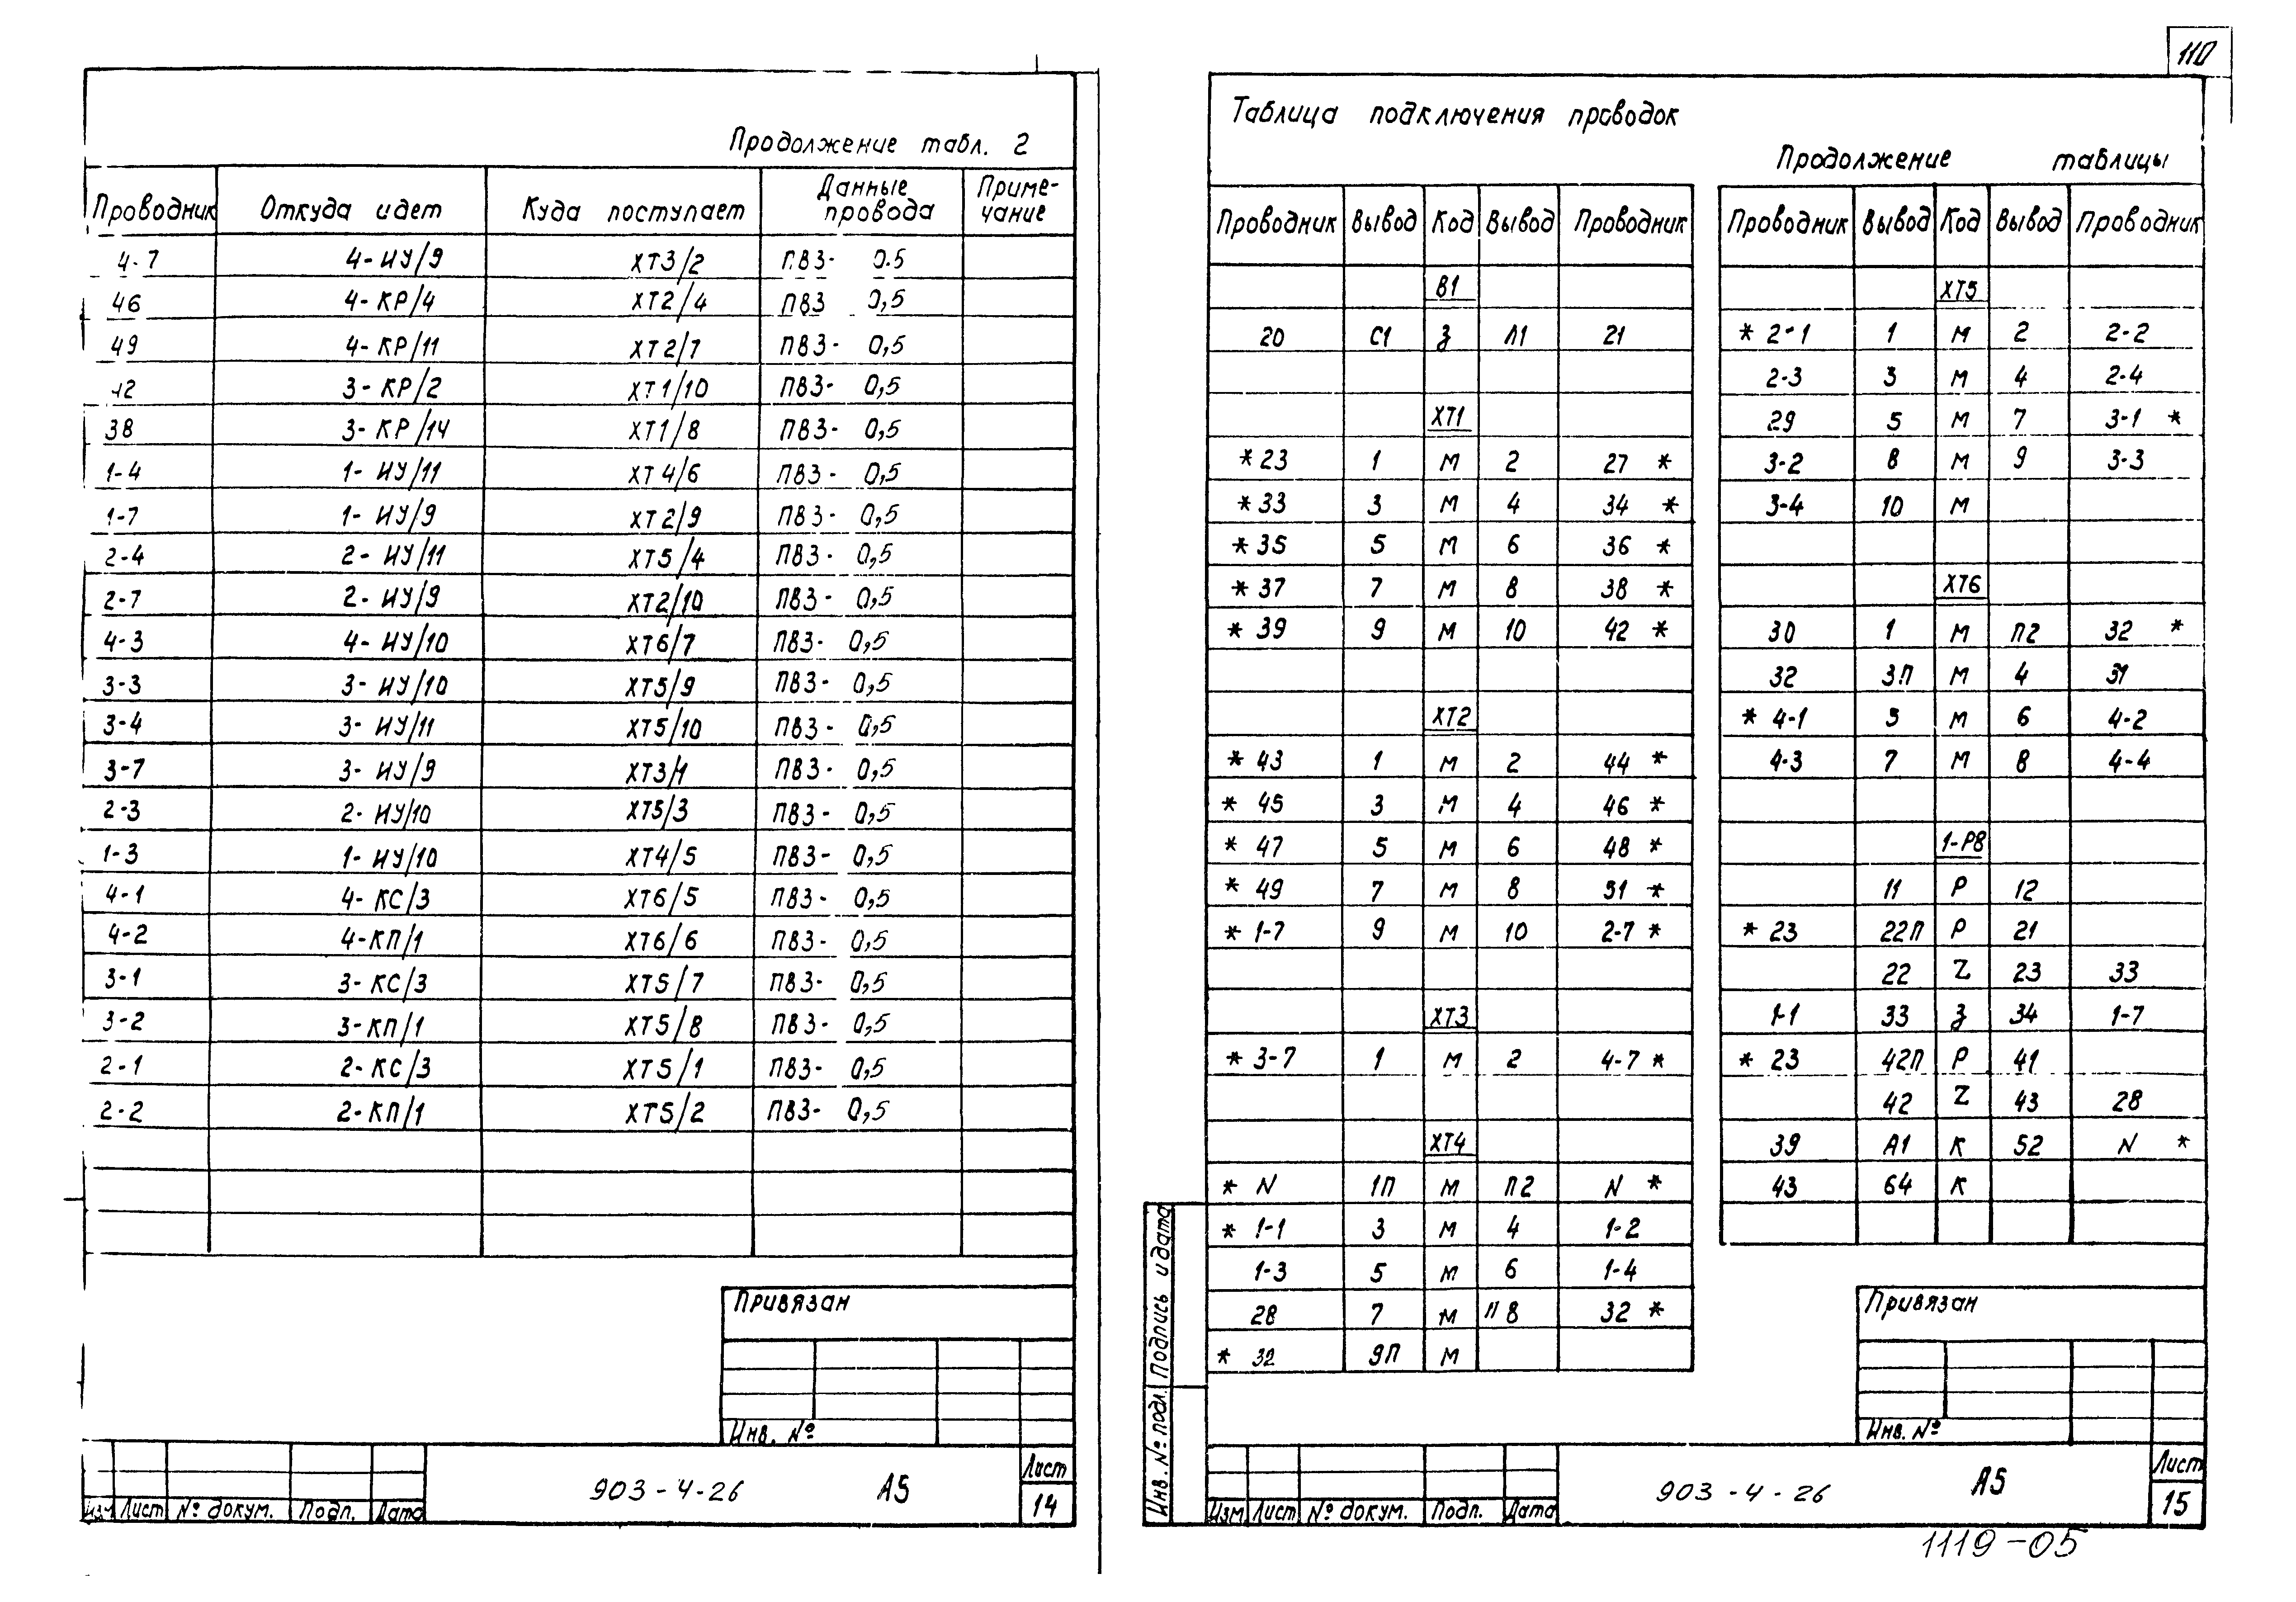 110
Продолжение табл. 2
Проводник Откуда идет Куда поступает Данные провода Приме-чание
4-7 4-ИУ/9 ХТ3/2 ПВ3- 0.5
46 4-КР/4 ХТ2/4 ПВ3 0,5
49 4-КР/11 ХТ2/7 ПВ3- 0,5
42 3-КР/2 ХТ1/10 ПВ3- 0,5
38 3-КР/14 ХТ1/8 ПВ3- 0,5
1-4 1-ИУ/11 ХТ4/6 ПВ3- 0,5
1-7 1-ИУ/9 ХТ2/9 ПВ3- 0,5
2-4 2-ИУ/11 ХТ5/4 ПВ3- 0,5
2-7 2-ИУ/9 ХТ2/10 ПВ3- 0,5
4-3 4-ИУ/10 ХТ6/7 ПВ3- 0,5
3-3 3-ИУ/10 ХТ5/9 ПВ3- 0,5
3-4 3-ИУ/11 ХТ5/10 ПВ3- 0,5
3-7 3-ИУ/9 ХТ3/1 ПВ3- 0,5
2-3 2-ИУ/10 ХТ5/3 ПВ3- 0,5
1-3 1-ИУ/10 ХТ4/5 ПВ3- 0,5
4-1 4-КС/3 ХТ6/5 ПВ3- 0,5
4-2 4-КП/1 ХТ6/6 ПВ3- 0,5
3-1 3-КС/3 ХТ5/7 ПВ3- 0,5
3-2 3-КП/1 ХТ5/8 ПВ3- 0,5
2-1 2-КС/3 ХТ5/1 ПВ3- 0,5
2-2 2-КП/1 ХТ5/2 ПВ3- 0,5
Привязан
Инв. №
Изм Лист № докум. Подп. Дата
903-4-26 А5
Лист
14
Таблица подключения проводок
Проводник Вывод Код Вывод Проводник
В1
20 С1 З Л1 21
ХТ1
*23 1 М 2 27 *
*33 3 М 4 34 *
*35 5 М 6 36 *
*37 7 М 8 38 *
*39 9 М 10 42 *
ХТ2
*43 1 М 2 44 *
*45 3 М 4 46 *
*47 5 М 6 48 *
*49 7 М 8 51 *
*1-7 9 М 10 2-7 *
ХТ3
*3-7 1 М 2 4-7 *
ХТ4
*N 1П М П2 N *
*1-1 3 М 4 1-2
1-3 5 М 6 1-4
28 7 М П8 32 *
*32 9П М
Продолжение таблицы
Проводник Вывод Код Вывод Проводник
ХТ5
*2-1 1 М 2 2-2
2-3 3 М 4 2-4
29 5 М 7 3-1 *
3-2 8 М 9 3-3
3-4 10 М
ХТ6
30 1 М П2 32 *
32 3П М 4 31
*4-1 5 М 6 4-2
4-3 7 М 8 4-4
1-Р8
11 Р 12
*23 22П Р 21
22 Z 23 33
1-1 33 З 34 1-7
*23 42П Р 41
42 Z 43 28
39 А1 К 52 N *
43 64 К
Привязан
Инв. №
Инв. № подл. Подпись и дата
Изм Лист № докум. Подп. Дата
903-4-26 А5
Лист
15
1119-05